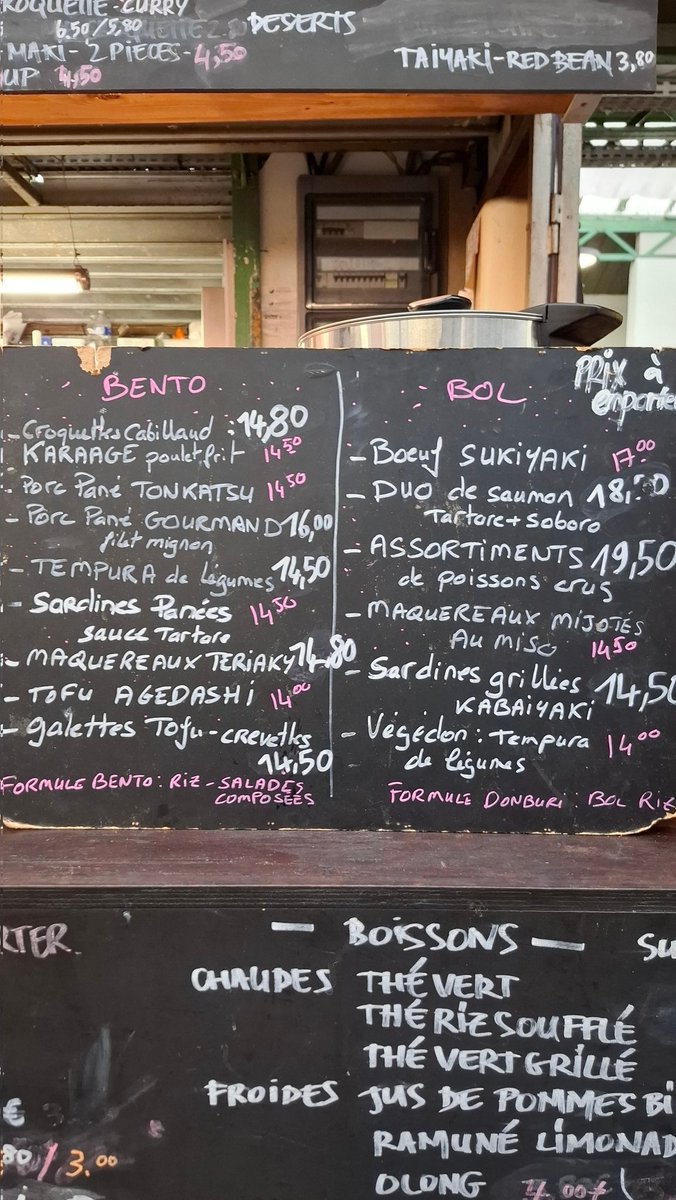 ROQUETTE-CURRY
6,50/5,80
MAKI - 2 PIECES - 4,50
UP 4,50
DESERTS
TAIYAKI-RED BEAN 3,80
PRIX à
emporter
BENTO
- Croquettes Cabillaud : 14,80
KARAAGE poulet frit 14 50
- Porc Pané TONKATSU 14 50
- Porc Pané GOURMAND 16,00
filet mignon
- TEMPURA de légumes 14,50
- Sardines Panées 14 50
sauce Tartare
- MAQUEREAUX TERIAKY 14,80
- TOFU AGEDASHI 14 00
- galettes Tofu - crevettes
14,50
FORMULE BENTO : RIZ - SALADES
COMPOSÉES
BOL
- Boeuf SUKIYAKI 17 00
- DUO de saumon 18,50
Tartare + Soboro
- ASSORTIMENTS 19,50
de poissons crus
- MAQUEREAUX MIJOTÉS
AU MISO 14 50
- Sardines grillées 14,50
KABAIYAKI
- Végédon : Tempura 14 00
de légumes
FORMULE DONBURI : BOL RIZ
RTER
€ 3
80 / 3.00
— BOISSONS — SU
CHAUDES THÉ VERT
THÉ RIZ SOUFFLÉ
THÉ VERT GRILLÉ
FROIDES JUS DE POMMES BI
RAMUNÉ LIMONAD
OLONG